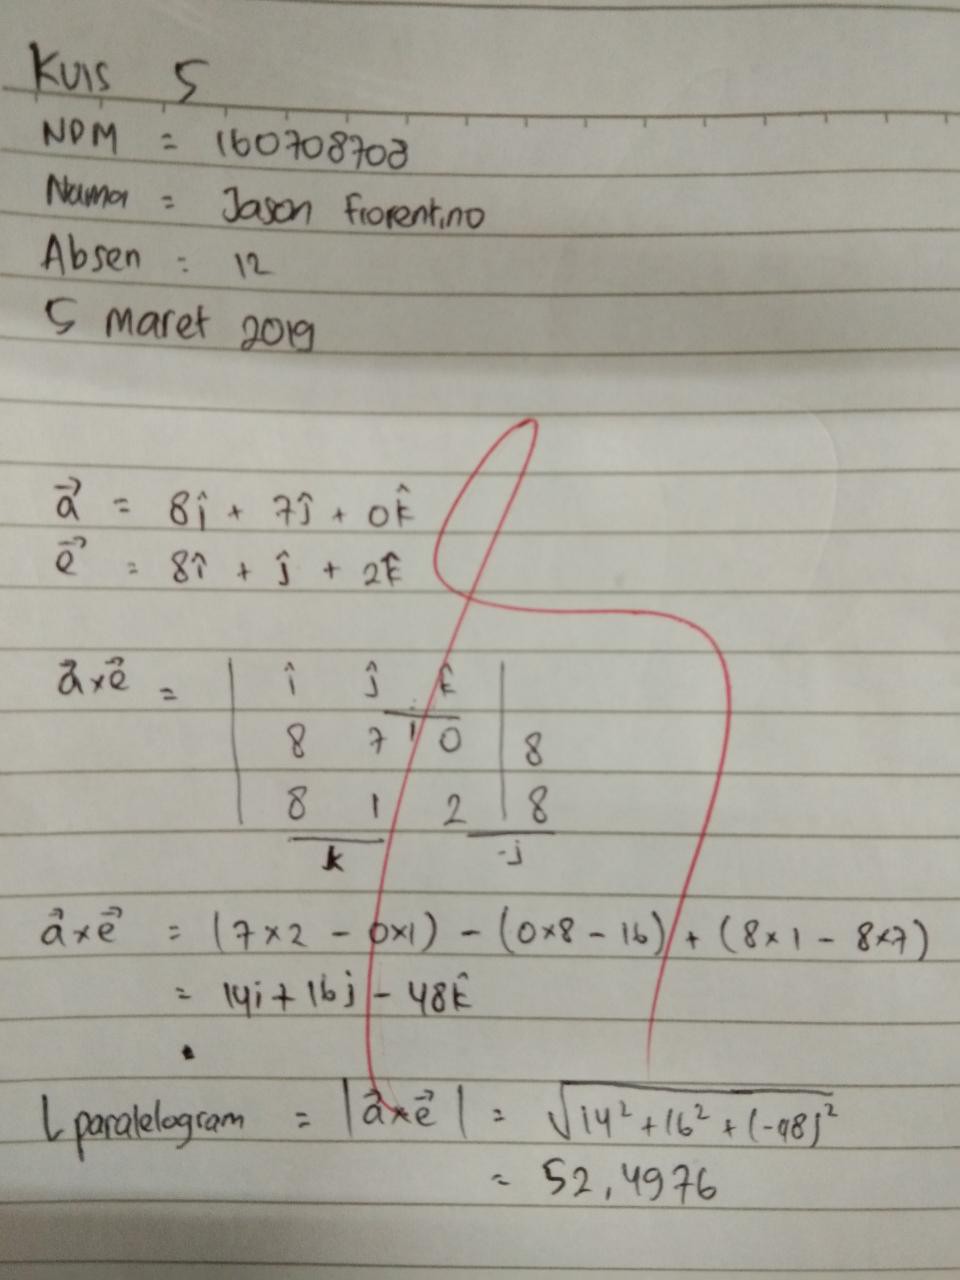 Kuis 5
NPM = 160708708
Nama = Jason Fiorentino
Absen = 12
5 Maret 2019
a⃗ = 8î + 7ĵ + 0k̂
e⃗ = 8î + ĵ + 2k̂
a⃗ x e⃗ = | î ĵ k̂ |
8 7 0 | 8
8 1 2 | 8
k -j
a⃗ x e⃗ = (7 x 2 - 0x1) - (0x8 - 16) + (8 x 1 - 8x7)
= 14i + 16j - 48k̂
L paralelogram = |a⃗ x e⃗| = √14² + 16² + (-48)²
= 52,4976